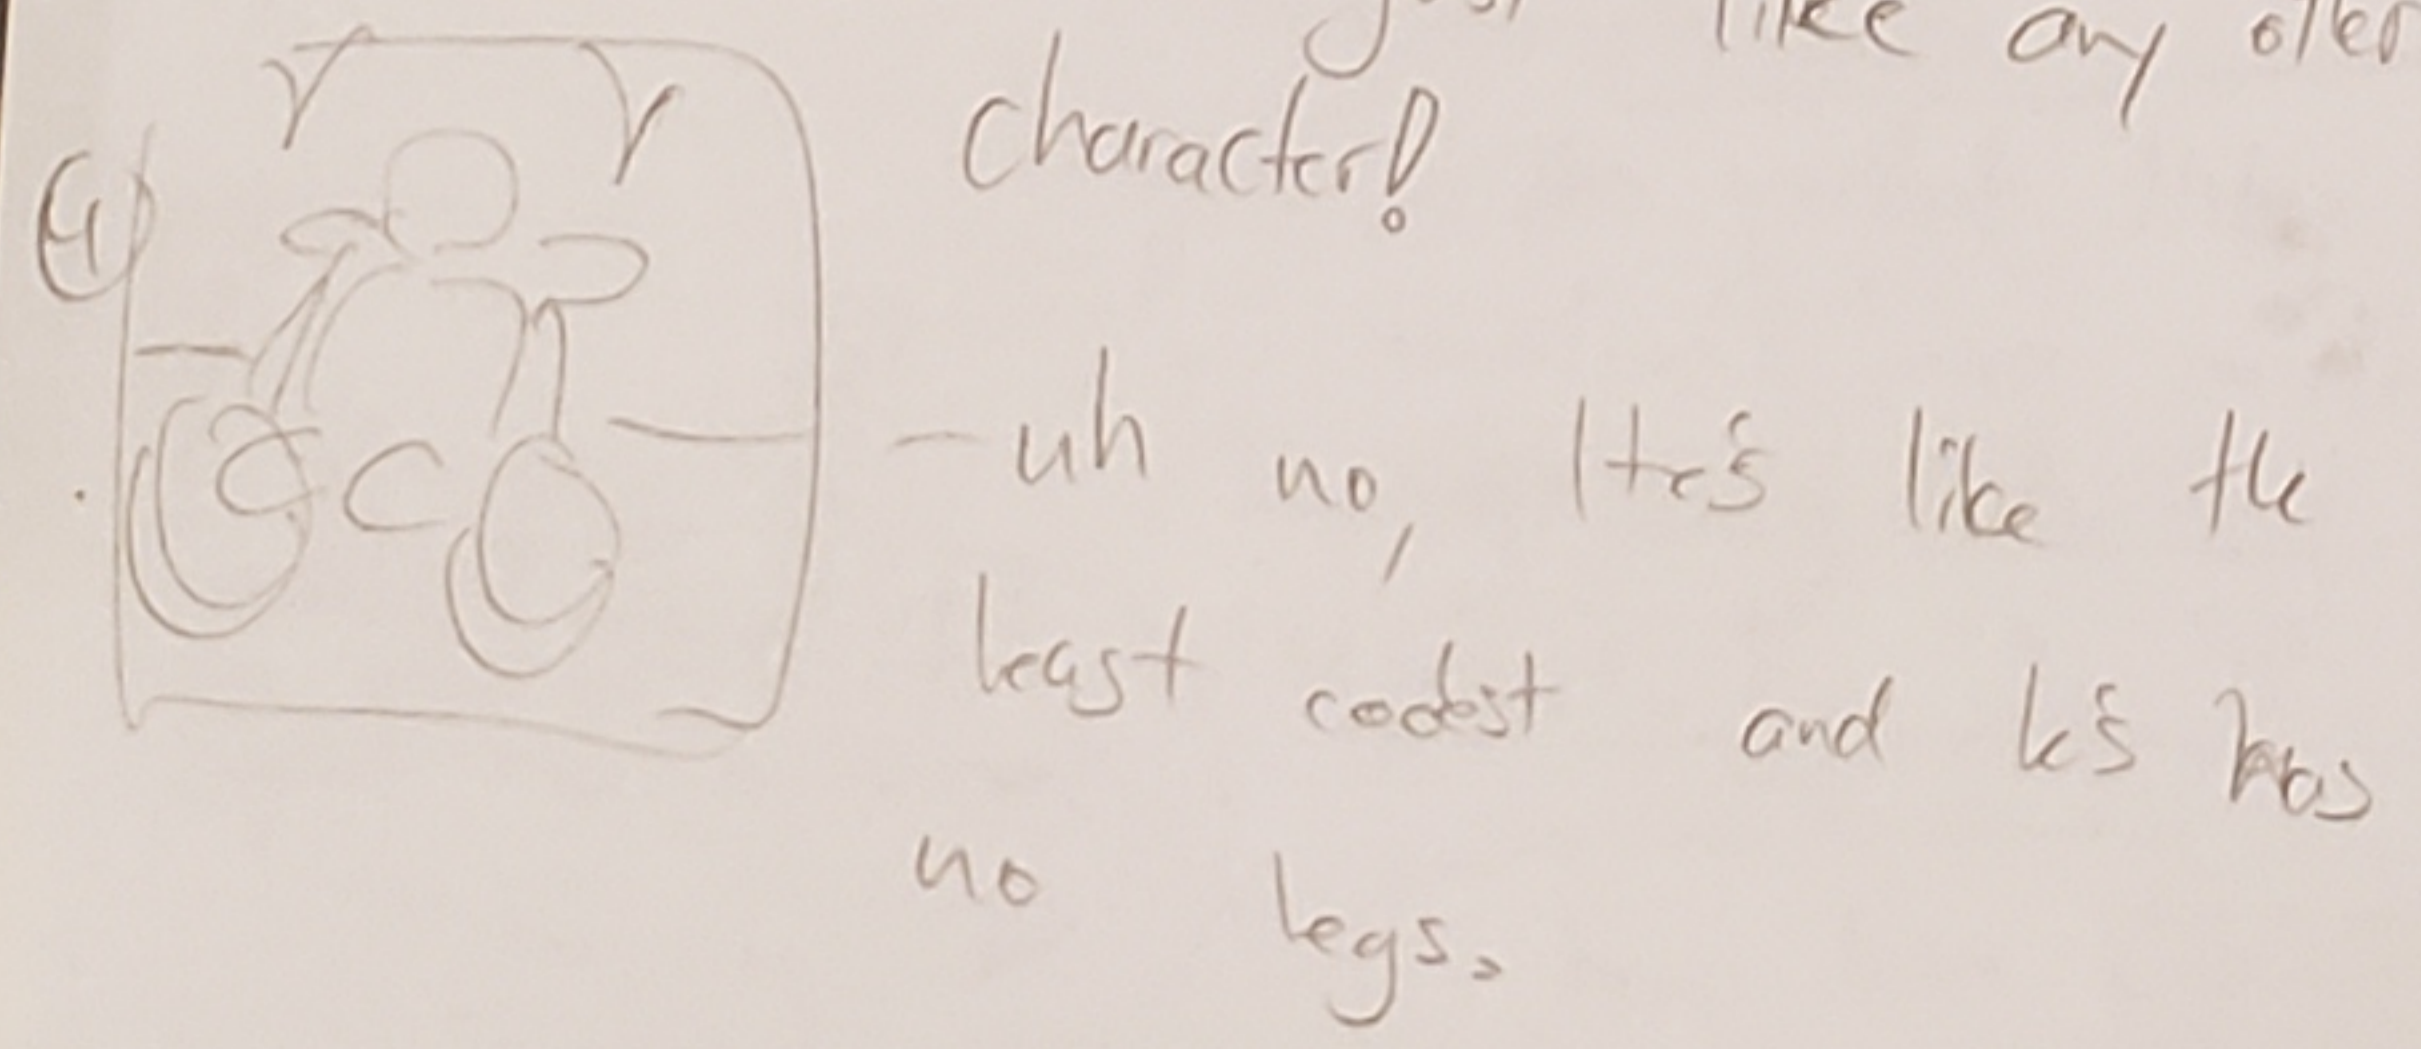 like any other
character!
4
-uh no, He's like the
least codest and he's has
no legs.